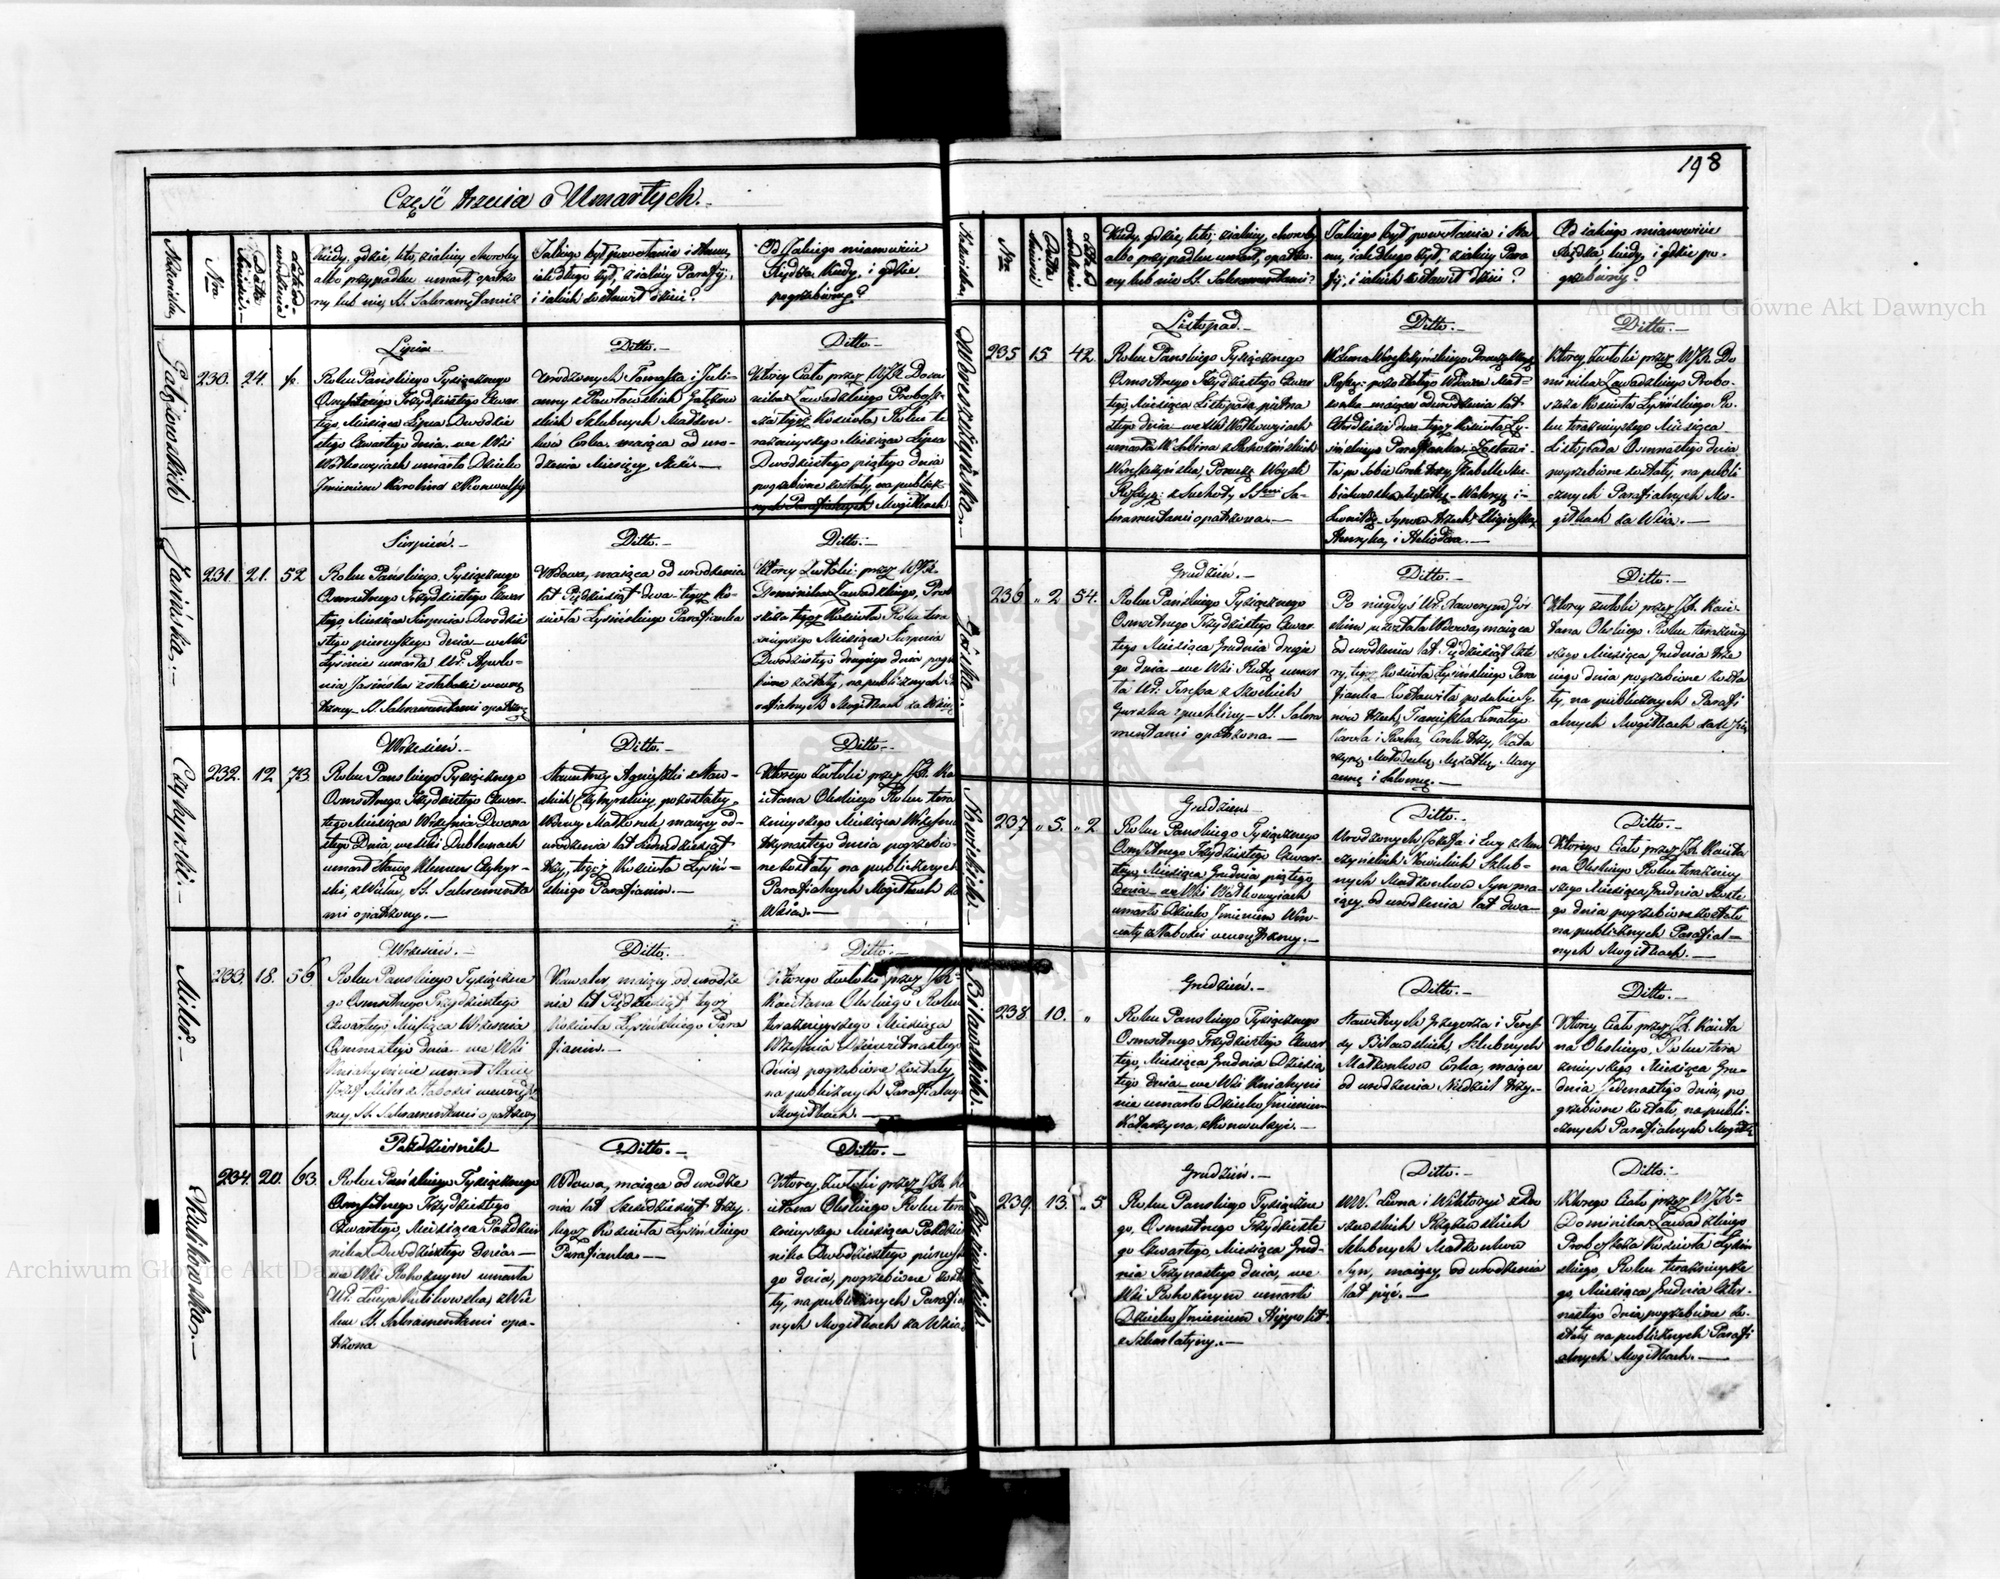 198
Część trzecia o Umarłych.
Nazwiska
Nro
Data
Kiedy, gdzie, kto, z jakiey choroby
albo przypadku umarł, opatrzo
ny lub nie, SS. Sakramentami?
Jakiego był powołania i stanu,
ile długo żył, z jakiey Parafij,
i jakich zostawił dzieci?
Od Jakiego mianowicie
Xiędza, kiedy, i gdzie
pogrzebiony?
230. 24.
Lipiec
Roku Pańskiego Tysiącznego
Osmsetnego Trzydziestego Czwar
tego, Miesiąca Lipca Dwudzie
stego Czwartego dnia, we Wsi
Wołkowyiach umarło Dziecko
Jmieniem Karolina z Konwulsyi
Ditto.
Urodzonych Tomasza i Juli-
anny z Pawłowskich
skich Szlubnych Małżon-
ków Corka, maiąca od uro-
dzenia Miesięcy Sześć.
Ditto
Ktorey Ciało przez WJX. Domi
nika Zawadzkiego Probosz
cza tegoż Kościoła Roku te
raznieyszego Miesiąca Lipca
Dwudziestego piątego dnia
pogrzebione zostały, na publicz
nych Parafialnych Mogiłkach
Jasińska.
231. 21. 52
Sierpień.
Roku Pańskiego, Tysiącznego
Osmsetnego Trzydziestego Czwar
tego, Miesiąca Sierpnia Dwudzie
stego pierwszego dnia we Wsi
umarła Ur.
nia Jasińska z słabości wewnę
trzney SS. Sakramentami opatrzona
Ditto.
Wdowa, maiąca od urodzenia
lat Pięćdziesiąt dwa tegoż Ko-
ścioła Łysińskiego Parafianka
Ditto.
Ktorey Zwłoki przez WJX.
Dominika Zawadzkiego, Prob
szcza tegoż Kościoła Roku tera
znieyszego Miesiąca Sierpnia
Dwudziestego drugiego dnia pogrze
bione zostały, na publicznych
rafialnych Mogiłkach za Wsią
Czyżyrski.
232. 12. 73
Wrzesień.
Roku Pańskiego Tysiącznego
Osmsetnego, Trzydziestego Czwar-
tego Miesiąca Września Dwuna
stego Dnia, we Wsi Dublenach
umarł Sławę: Klemens Czyżyr-
ski, z Wieku, SS. Sakramenta
mi opatrzony.
Ditto.
Sławetney Agnieszki
skich Czyżyrskiey, pozostałey
Wdowy Małżonek maiący od
urodzenia lat Siedmdziesiąt
trzy, tegoż Kościoła Łysiń-
skiego Parafianin.
Ditto.
Ktorego Zwłoki przez JX. Ka
ietana Oleskiego Roku tera
znieyszego Miesiąca Września
trzynastego dnia pogrzebio-
ne zostały na publicznych
Parafialnych Mogiłkach za
Wsią.
Miler.
233. 18. 56
Wrzesień.
Roku Pańskiego Tysiączne
go Osmsetnego Trzydziestego
Czwartego, Miesiąca Września
Osmnastego dnia we Wsi
Kniahyninie umarł Sławę:
Jozef Miler z słabości wewnętrz
ney, SS. Sakramentami opatrzony
Ditto.
Kawaler, maiący od urodze
nia lat Pięćdziesiąt tegoż
Kościoła Łysińskiego Para
fianin.
Ditto.
Ktorego Zwłoki przez JX.
Kaietana Oleskiego Roku
teraznieyszego Miesiąca
Września Dziewiętnastego
dnia, pogrzebione zostały,
na publicznych Parafialnych
Mogiłkach.
Kulikowska.
234. 20. 63.
Październik
Roku Pańskiego Tysiącznego
Osmsetnego Trzydziestego
Czwartego, Miesiąca Paździer
nika Dwudziestego dnia
we Wsi Rohoznym umarła
Ur. Łucya Kulikowska, z Wie
ku SS. Sakramentami opa-
trzona
Ditto.
Wdowa, maiąca od urodze
nia lat Sześćdziesiąt trzy,
tegoż Kościoła Łysińskiego
Parafianka.
Ditto.
Ktorey Zwłoki przez JX. Ka
ietana Oleskiego Roku tera
znieyszego Miesiąca Paździer
nika Dwudziestego pierwsze
go dnia, pogrzebione zosta
ły, na publicznych Parafial
nych Mogiłkach za Wsią.
Nazwiska
Nro
Data
Kiedy, gdzie, kto, z jakiey choroby
albo przypadku umarł, opatrzo-
ny lub nie SS. Sakramentami?
Jakiego był powołania i sta
nu, ile długo żył, z jakiey Para
fij, i jakich zostawił dzieci?
Od jakiego mianowicie
Xiędza, kiedy, i gdzie po-
grzebiony?
235 15 42
Listopad.
Roku Pańskiego Tysiącznego
Osmsetnego Trzydziestego Czwar
tego, Miesiąca Listopada piętna
stego dnia we Wsi Wołkowyiach
umarła
Porucz: Woysk
Rossyi: z Suchoty SSmi Sa-
kramentami opatrzona.
Ditto.
Porucz: Woysk
Rossyi: pozostałego Wdowca Mał-
żonka maiąca od urodzenia lat
Czterdzieści dwa tegoż Kościoła Ły-
sińskiego Parafianka. Zostawi-
ła po sobie Corek trzy, Izabellę
Mężatkę, Waleryę i
Leonildę, Synow trzech
Henryka, i Heliodora.
Ditto.
Ktorey Zwłoki przez WJX. Do
minika Zawadzkiego Probo-
szcza Kościoła Łysińskiego Ro-
ku teraznieyszego Miesiąca
Listopada Osmnastego dnia
pogrzebione zostały, na publi
cznych Parafialnych Mo-
giłkach za Wsią.
Gorska.
236 „2 54.
Grudzień.
Roku Pańskiego Tysiącznego
Osmsetnego Trzydziestego Czwar-
tego Miesiąca Grudnia drugie
go dnia we Wsi Rudzę umar
ła Ur. Teresa z
Gurska z puchliny SS. Sakra
mentami opatrzona.
Ditto.
Po niegdyś Ur. Xawerym Gór
skim pozostała Wdowa, maiąca
od urodzenia lat Pięćdziesiąt czte
ry, tegoż Kościoła Łysińskiego Para
fianka. Zostawiła po sobie Sy-
now trzech, Franciszka Ignacego
Karola i Rocha, Corek trzy, Kata
rzynę Mężatkę, Mary
annę i Salomeę.
Ditto.
Ktorey zwłoki przez JX. Kaie
tana Oleskiego Roku teraznieyszego
Miesiąca Grudnia trze
ciego dnia pogrzebione zosta
ły, na publicznych Parafi
alnych Mogiłkach za Wsią
Nowickich.
237 „5. „2
Grudzień
Roku Pańskiego Tysiącznego
Osmsetnego Trzydziestego Czwar-
tego, Miesiąca Grudnia piątego
dnia we Wsi Wołkowyiach
umarło Dziecko Jmieniem Win-
centy z słabości wewnętrzney.
Ditto.
Urodzonych Jozefa i Ewy
Nowickich Szlub-
nych Małżonkow Syn ma
iący od urodzenia lat dwa
Ditto.
Ktorego Ciało przez JX. Kaieta
na Oleskiego Roku teraznieyszego
Miesiąca Grudnia Szoste
go dnia pogrzebione zostało
na publicznych Parafial-
nych Mogiłkach.
Bilawskich.
238 10. „
Grudzień.
Roku Pańskiego Tysiącznego
Osmsetnego Trzydziestego Czwar
tego, Miesiąca Grudnia Dziesią
tego dnia we Wsi Kniahyni
nie umarło Dziecko Jmieniem
Katarzyna, z Konwulsyi.
Ditto.
Sławetnych Grzegorza i Teres
sy Bilawskich, Szlubnych
Małżonkow Corka, maiąca
od urodzenia Niedziel trzy.
Ditto.
Ktorey Ciało przez JX. Kaieta
na Oleskiego, Roku tera
znieyszego Miesiąca Gru-
dnia Jedenastego dnia, po
grzebione zostało, na publi-
cznych Parafialnych Mogiłkach
239. 13. „5
Grudzień.
Roku Pańskiego Tysiączne
go, Osmsetnego Trzydzieste
go Czwartego, Miesiąca Grud-
nia Trzynastego dnia, we
Wsi Rohoznym umarło
Dziecko Jmieniem Hyppolit
z Szkarlatyny.
Ditto.
WW. Leona i Wiktoryi
Szlubnych Małżonkow
Syn, maiący, od urodzenia
lat pięć.
Ditto.
Ktorego Ciało przez WJX.
Dominika Zawadzkiego
Proboszcza Kościoła Łysiń
skiego, Roku teraznieysze
go, Miesiąca Grudnia Czter-
nastego dnia, pogrzebione zo-
stało, na publicznych Parafi
alnych Mogiłkach.
Archiwum Główne Akt Dawnych
Archiwum Główne Akt Dawnych